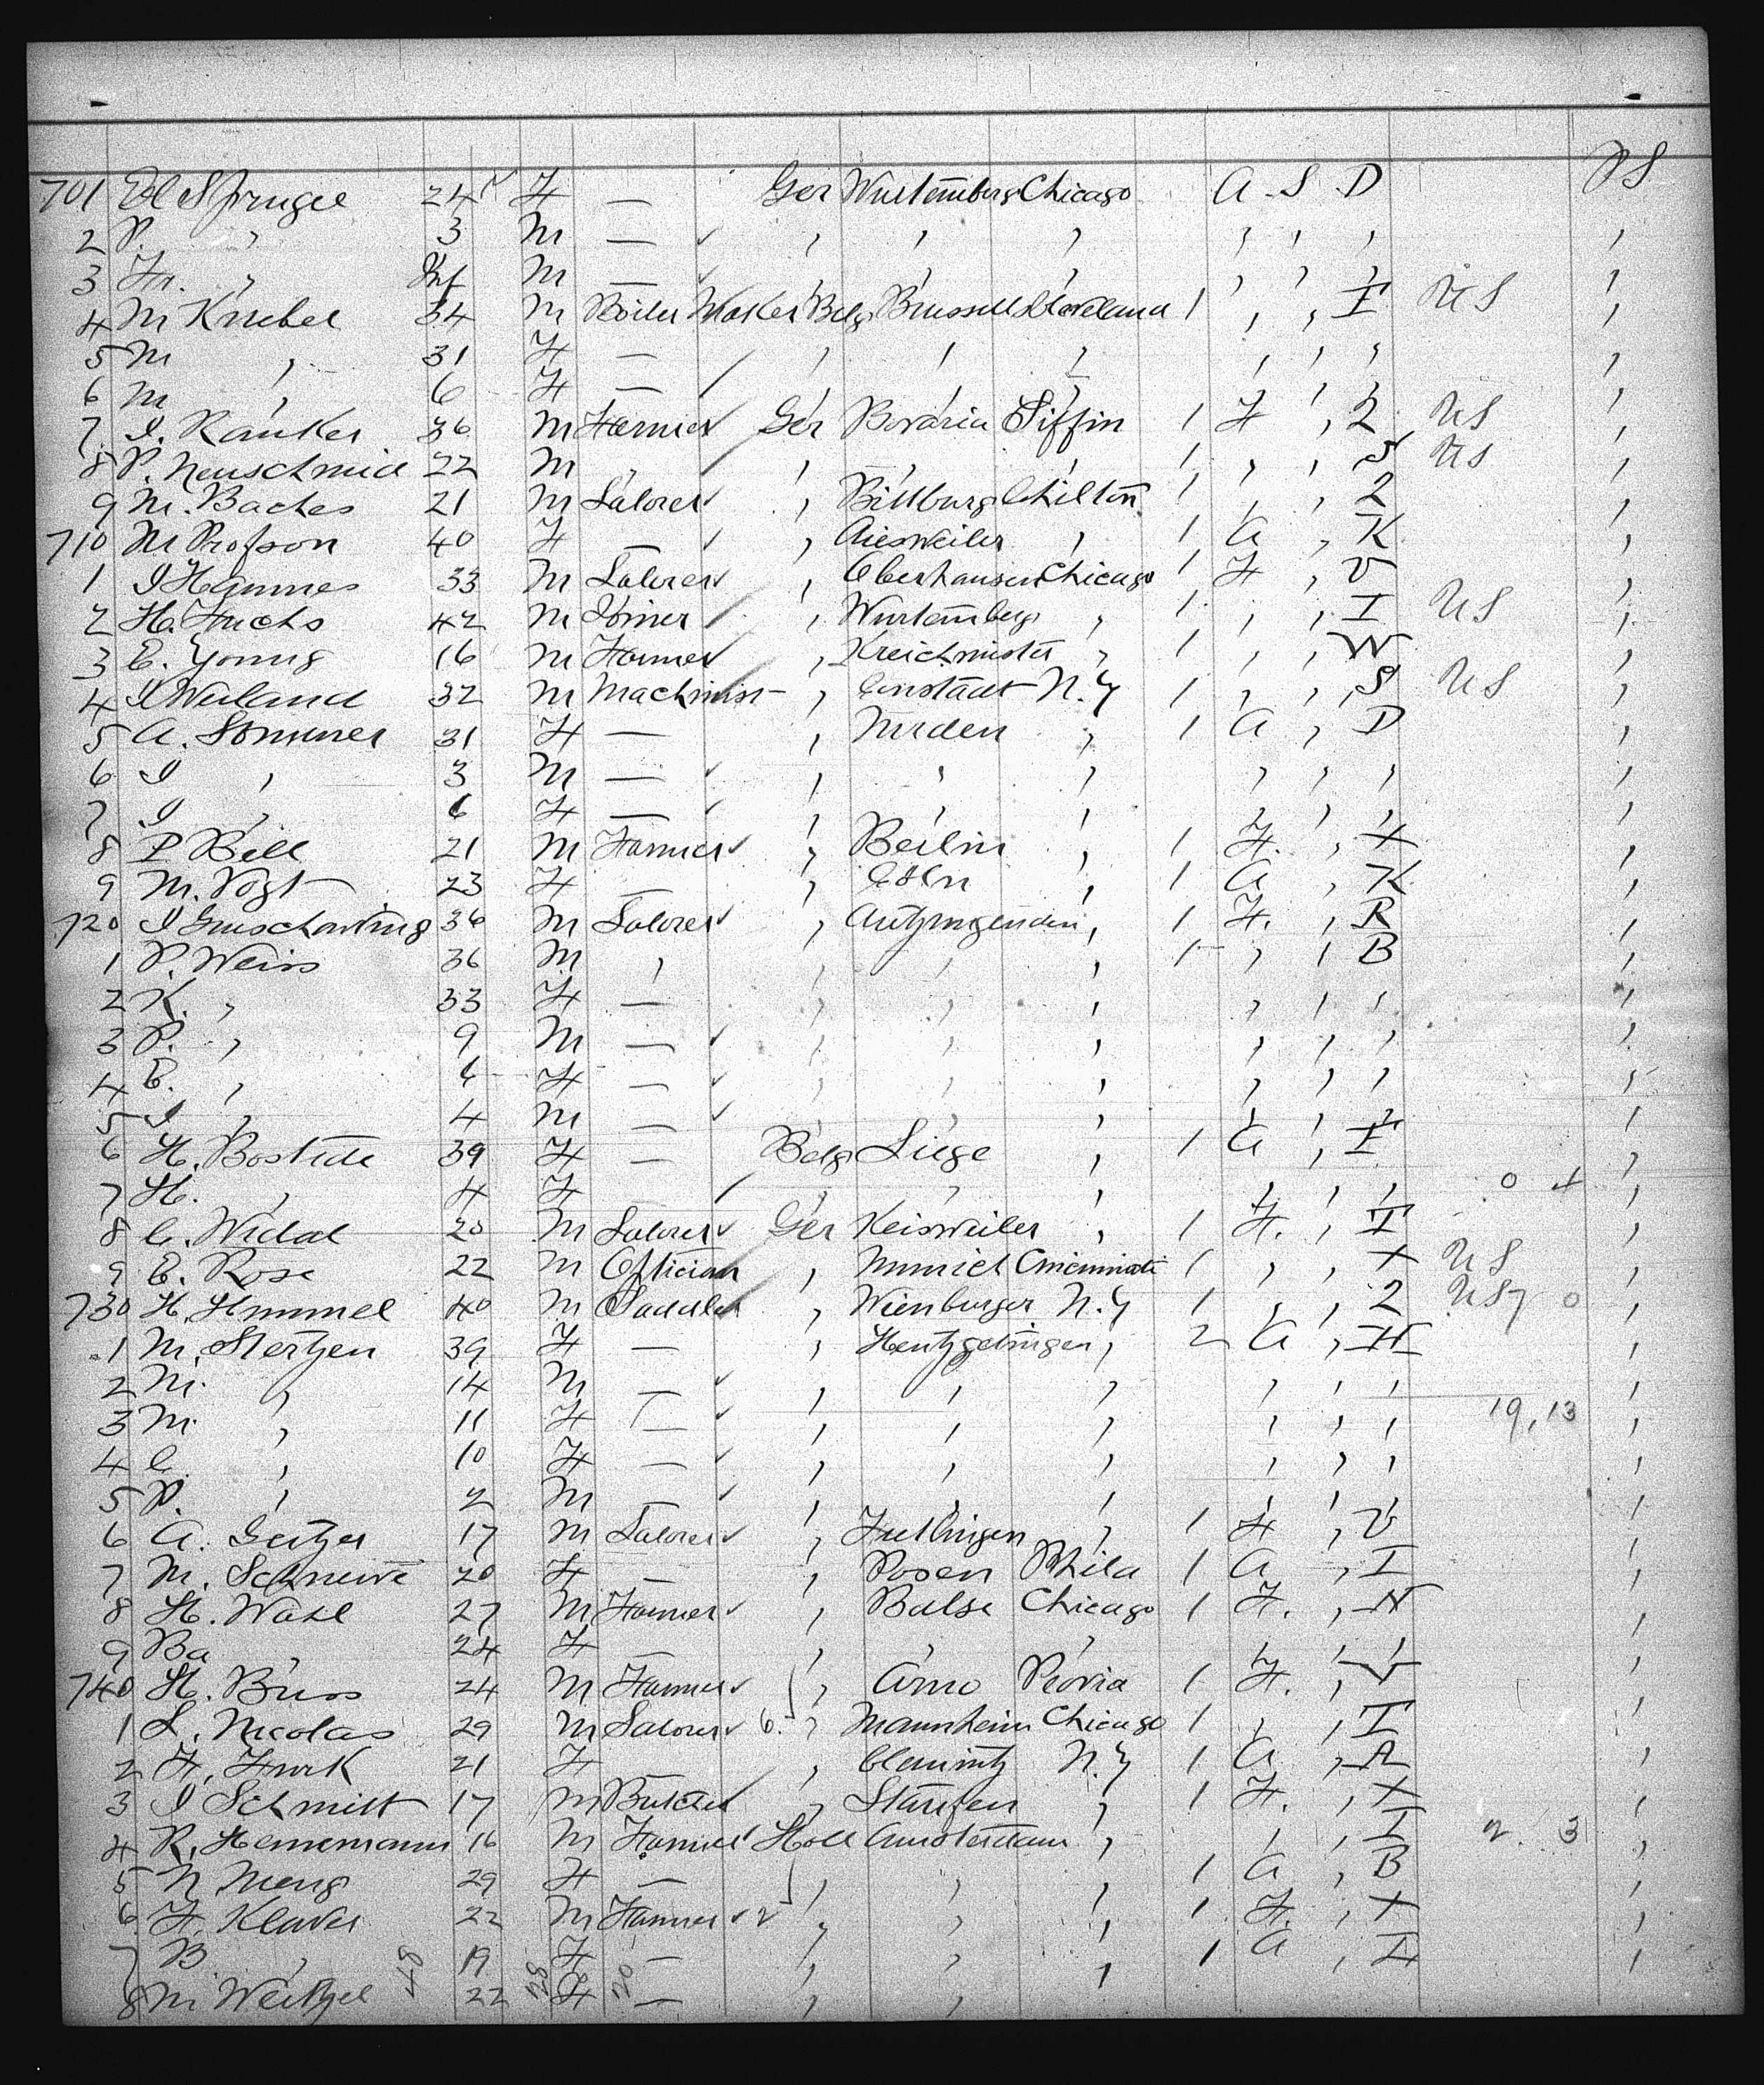 PS
701 El Sprugel 24 F — Ger Wurtemberg Chicago A S D
2 P. " 3 M — " " " " " " "
3 Fr. " M — " " " " " " "
4 M Knebel 34 M Boiler Maker Belg Brussell Cleveland 1 " " I US "
5 M " 31 F — " " " " " " "
6 M " 6 F — " " " " " " "
7 J. Ranker 36 M Farmer Ger Bavaria Tiffin 1 F " 2 US "
8 P. Neuschmid 22 M " " " " 1 " " S US "
9 M. Baches 21 M Laborer " Bittburg Chilton 1 " " 2 "
710 M Profson 40 F — " Aiesweiler " 1 A " K "
1 J Hammes 33 M Laborer " Oberhausen Chicago 1 F " V "
2 H. Fuchs 42 M Joiner " Wurtemberg " 1 " " I US "
3 E. Young 16 M Farmer " Kreichmister " 1 " " W "
4 J Weiland 32 M Machinist " N.Y 1 " " S US "
5 A. Sommer 31 F — " Minden " 1 A " D "
6 J " 3 M — " " " " " " "
7 J " 6 F — " " " " " " "
8 P Bill 21 M Farmer " Berlin " 1 F. " X "
9 M. Vogt 23 F — " Cöln " 1 A " K "
720 J 36 M Laborer " " 1 F. " R "
1 P. Weiss 36 M " " " " 1 " " B "
2 K. " 33 F — " " " " " " "
3 P. " 9 M — " " " " " " "
4 E. " 6 F — " " " " " " "
5 J " 4 M — " " " " " " "
6 H. Bostide 39 F — Belg Liege " 1 A " I "
7 H. " 4 F — " " " " " " 0 4 "
8 C. Widal 20 M Laborer Ger Keisweiler " 1 F. " I "
9 E. Rose 22 M Optician " Munich Cincinnati 1 " " X US "
730 H. Himmel 40 M Saddler " Wienburger N.Y 1 " " 2 US 7 0 "
1 M. Stertzen 39 F — " Hentzgelingen " 2 A " H "
2 M. " 14 M — " " " " " " "
3 M. " 11 F — " " " " " " 19, 13 "
4 C. " 10 F — " " " " " " "
5 P. " 2 M — " " " " " " "
6 A. Geitzer 17 M Laborer " " 1 F " V "
7 M. 20 F — " Posen Phila 1 A " I "
8 H. Wahl 27 M Farmer " Balse Chicago 1 F. " N "
9 Ba " 24 F — " " " " " " "
740 H. Buss 24 M Farmer " Arno Peoria 1 F. " V "
1 L. Nicolas 29 M Laborer 6. " Mannheim Chicago 1 " " I "
2 F. Funk 21 F — " Clemintz N.Y 1 A " A "
3 J Schmitt 17 M Butcher " Staufen " 1 F. " X "
4 R. Hennemann 16 M Farmer Holl Amsterdam " " " I 2. 3 "
5 N Meng 29 F — " " " 1 A " B "
6 F. Klaver 22 M Farmer " " " 1 F. " X "
7 B " 19 F — " " " 1 A " I "
8 M Weitzel 22 F — " "
48 28 20